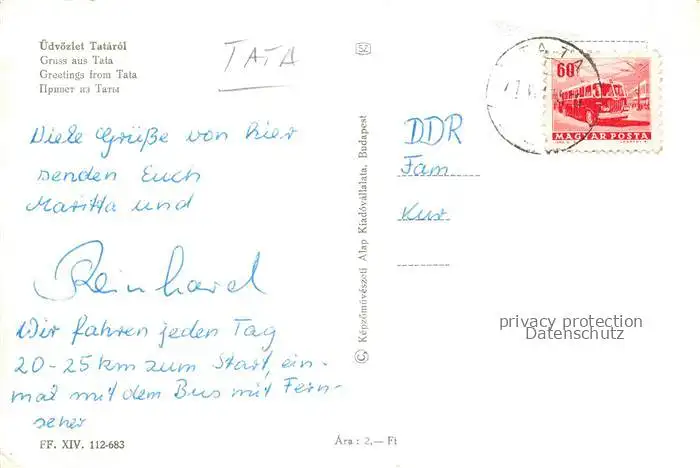 Üdvözlet Tatáról
Gruss aus Tata
Greetings from Tata
Привет из Таты
TATA
SZ
TATA
60f
MAGYAR POSTA
Viele Grüße von hier
senden Euch
Maritta und
Reinhard
Wir fahren jeden Tag
20-25 km zum Start, ein-
mal mit dem Bus mit Fern-
seher
FF. XIV. 112-683
© Képzőművészeti Alap Kiadóvállalata, Budapest
Ára : 2,— Ft
DDR
Fam
Kur
privacy protection
Datenschutz